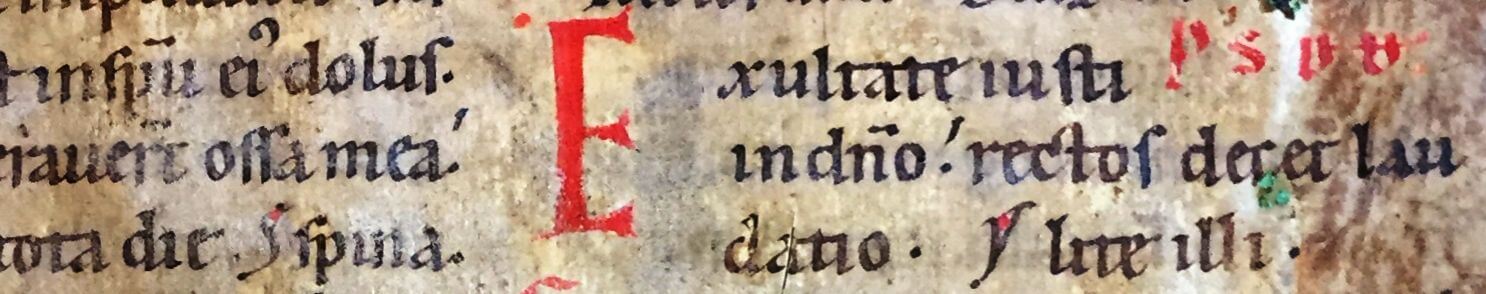 t in sp̄u ei᾽ dolus.
erauer̄t ossa mea!
tota die. ẏ spina.
Exultate iusti p̄s
in dn̄o! rectos decet lau
datio. ẏ lite illi.